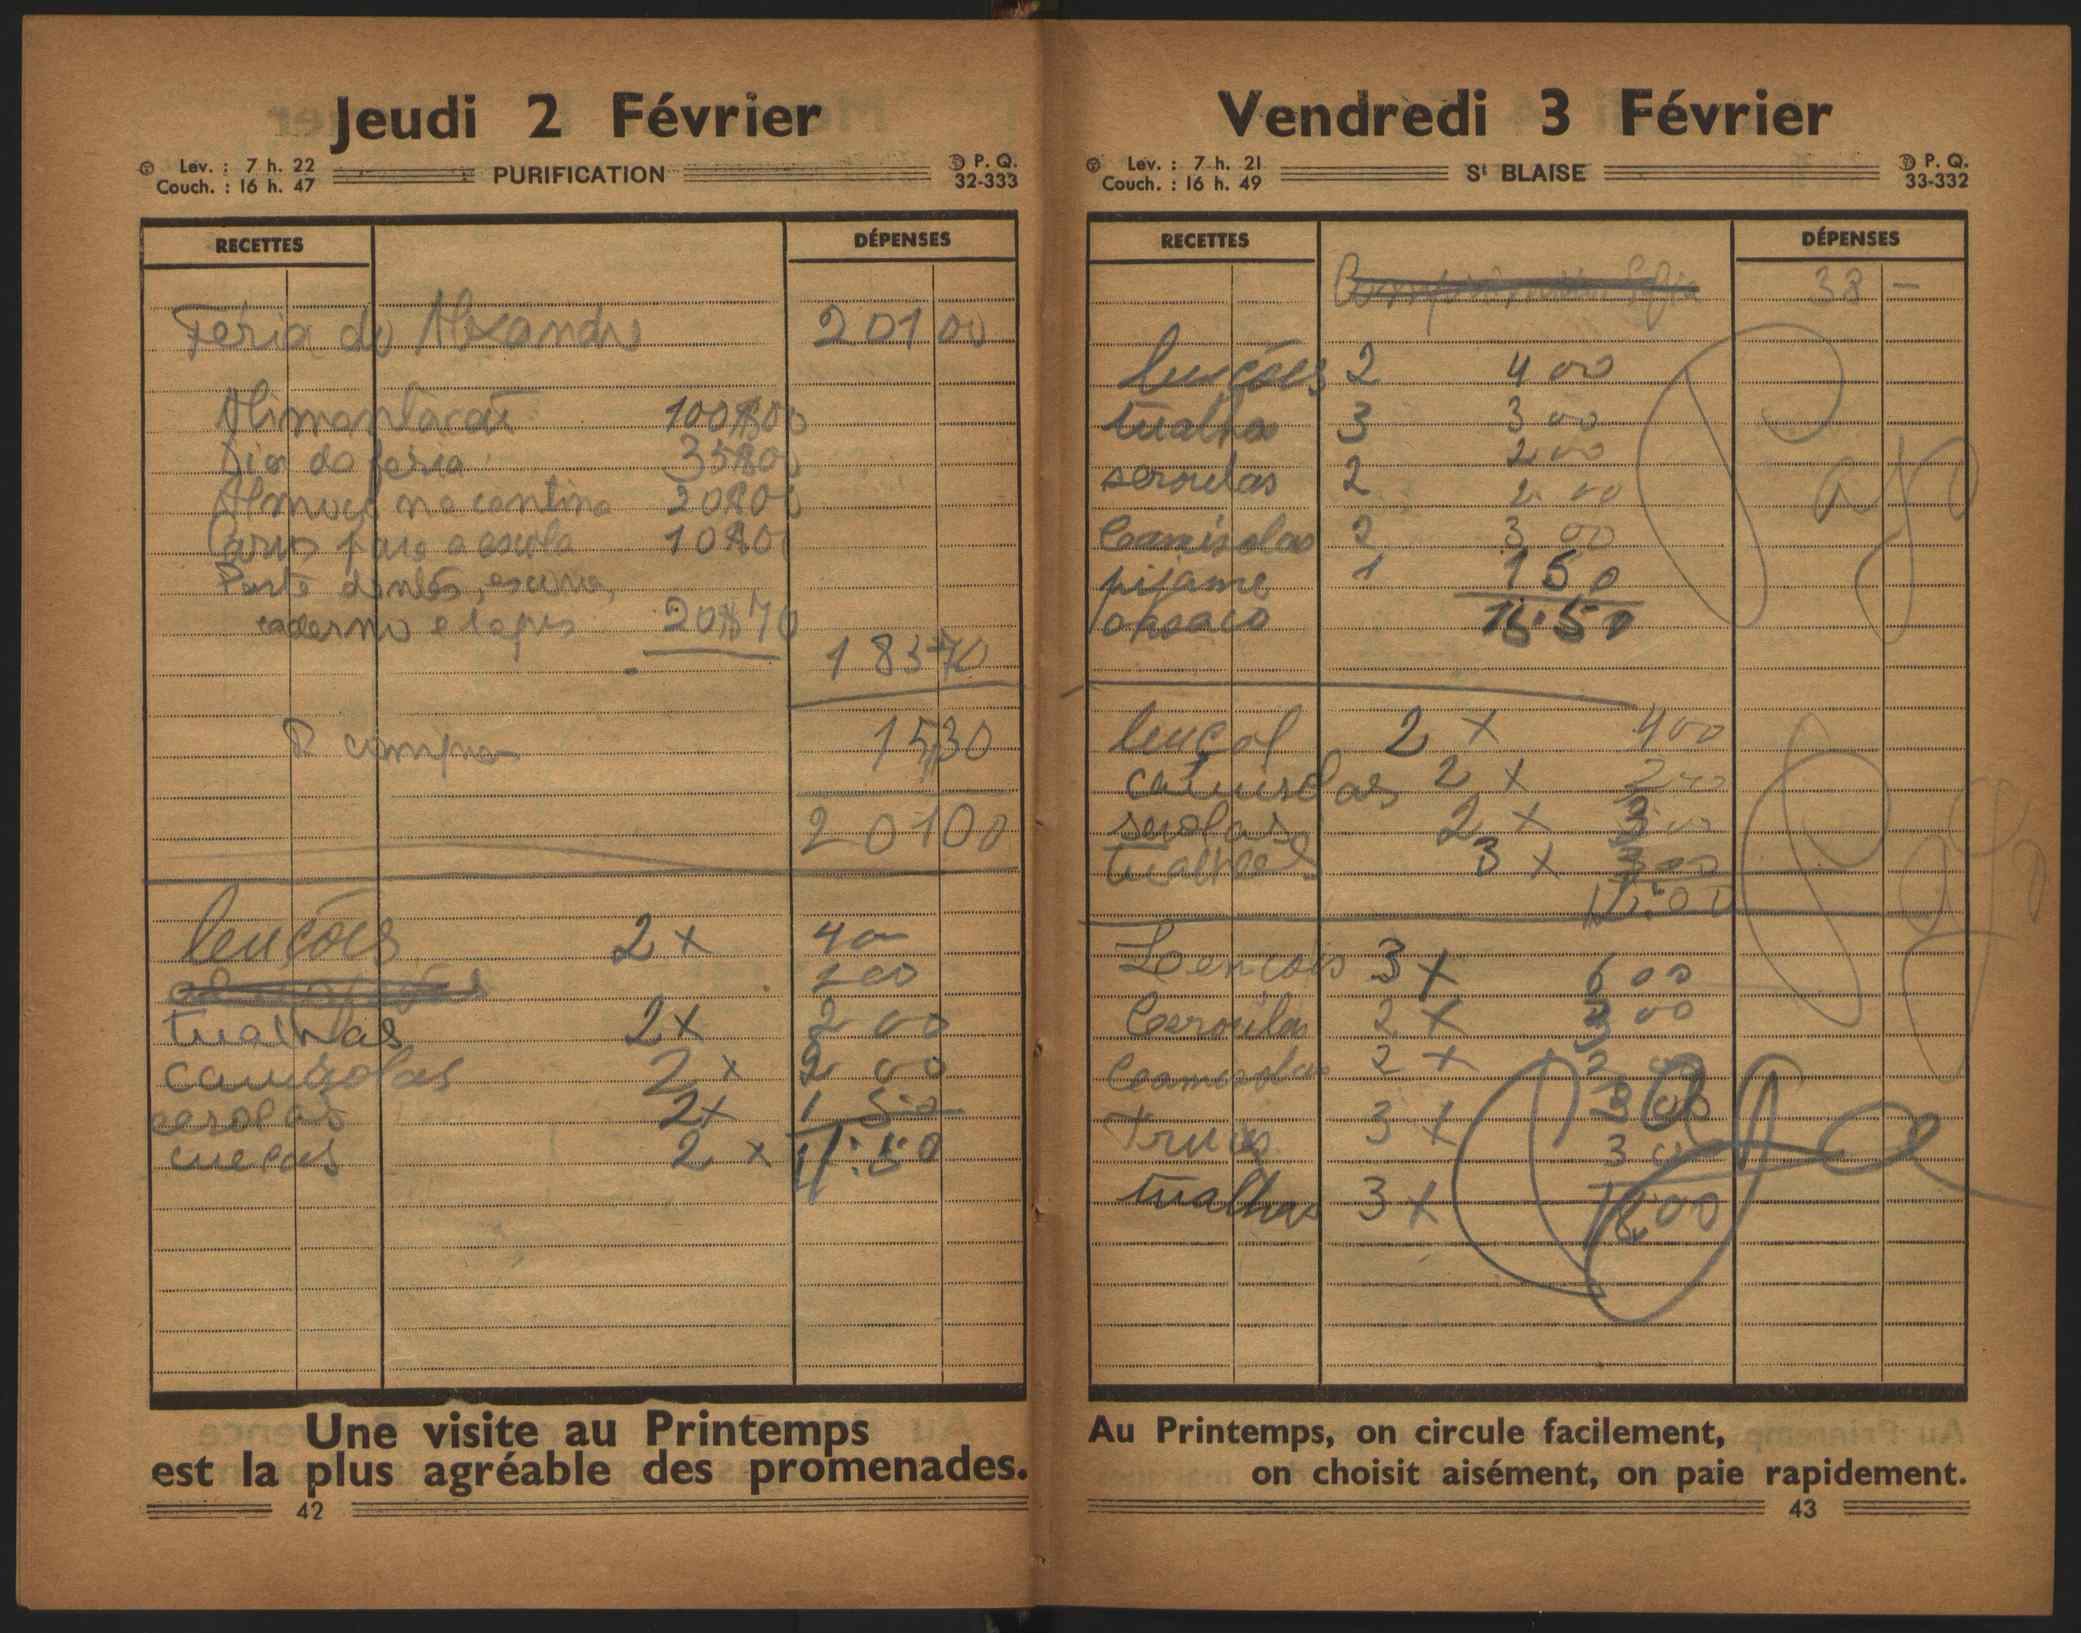 Jeudi 2 Février
Lev. : 7 h. 22
Couch. : 16 h. 47
PURIFICATION
P. Q.
32-333
RECETTES
DÉPENSES
Feria do Alexandre 201 00
Alimentacão 100$00
Dia da feria 35$00
Almoço na cantina 20$00
Carro para a escola 10$00
Pasta dentes, escova,
caderno e lapis 20$70
183 70
P compra 15 30
201 00
lençóes 2 x 4 00
2 00
tualhas 2 x 2 00
camisolas 2 x 2 00
cerolas 2 x 1 50
cuecas 2 x 11.50
Une visite au Printemps
est la plus agréable des promenades.
42
Vendredi 3 Février
Lev. : 7 h. 21
Couch. : 16 h. 49
St BLAISE
P. Q.
33-332
RECETTES
DÉPENSES
38 -
lençóes 2 4 00
tualha 3 3 00
2 00
seroulas 2 2 00
Camisolas 2 3 00
pijame 1 1 50
casaco 15.50
lençol 2 x 4 00
camisolas 2 x 2 00
serolas 2 x 3 00
tualhas 3 x 3 00
12.00
Lencois 3 x 6 00
Ceroulas 2 x 3 00
Camisolas 2 x 2 00
truces 3 x 3 00
3 00
tualhas 3 x
Pago
Au Printemps, on circule facilement,
on choisit aisément, on paie rapidement.
43